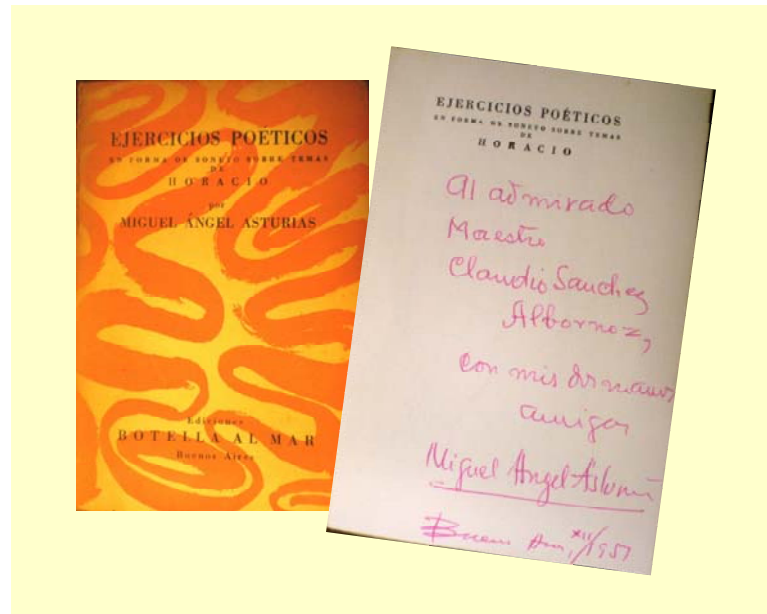 EJERCICIOS POÉTICOS
EN FORMA DE SONETO SOBRE TEMAS
DE
HORACIO
por
MIGUEL ÁNGEL ASTURIAS
Ediciones
BOTELLA AL MAR
Buenos Aires
EJERCICIOS POÉTICOS
EN FORMA DE SONETO SOBRE TEMAS
DE
HORACIO
Al admirado
Maestro
Claudio Sanchez
Albornoz,
con mis dos manos
amigas
Miguel Angel Asturias
Buenos Aires, XII/1957